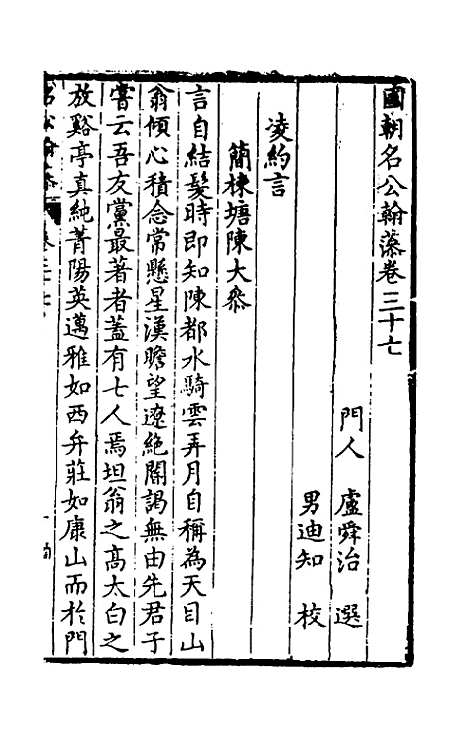 國朝名公翰藻卷三十七
門人　盧舜治　選
男迪知　校
凌約言
簡棟塘陳大參
言自結髮時即知陳都水騎雲弄月自稱為天目山
翁傾心積念常懸星漢瞻望遼絕闊謁無由先君子
嘗云吾友黨最著者蓋有七人焉坦翁之高太白之
放谿亭真純菁陽英邁雅如西弁莊如康山而於門